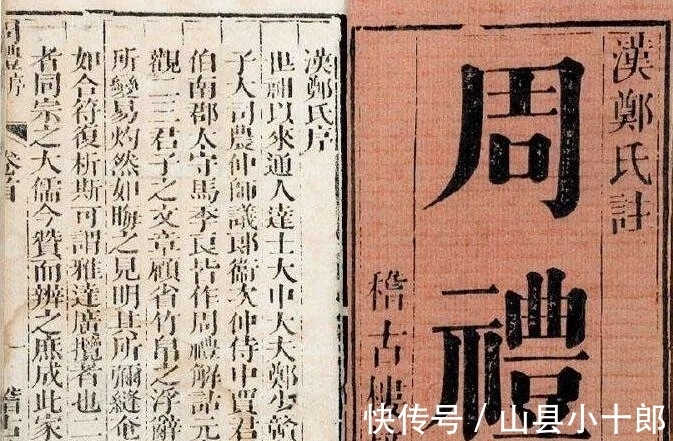 漢鄭氏註
周禮
稽古樓
漢鄭氏序
世祖以來通人達士大中大夫鄭少贛
子大司農仲師議郎衞次仲侍中賈君
伯南郡太守馬季長皆作周禮解詁元
觀二三君子之文章顧省竹帛之浮辭
所變易灼然如晦之見明其所彌縫奄
如合符復析斯可謂雅達廣攬者也二
者同宗之大儒今贊而辨之庶成此家
周禮序 卷首 一 稽古
快传号 / 山县小十郎